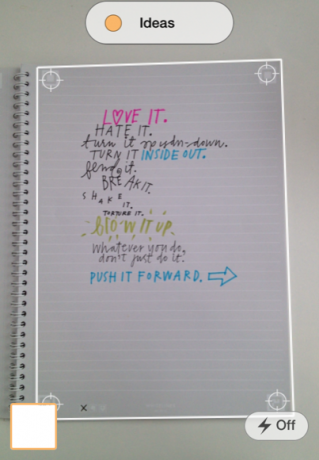 Ideas
LOVE IT.
HATE IT.
turn it upside-down.
TURN IT INSIDE OUT.
bend it.
BREAK IT.
SHAKE
IT.
TORTURE IT.
BLOW IT UP.
whatever you do,
don't just do it.
PUSH IT FORWARD.
Off